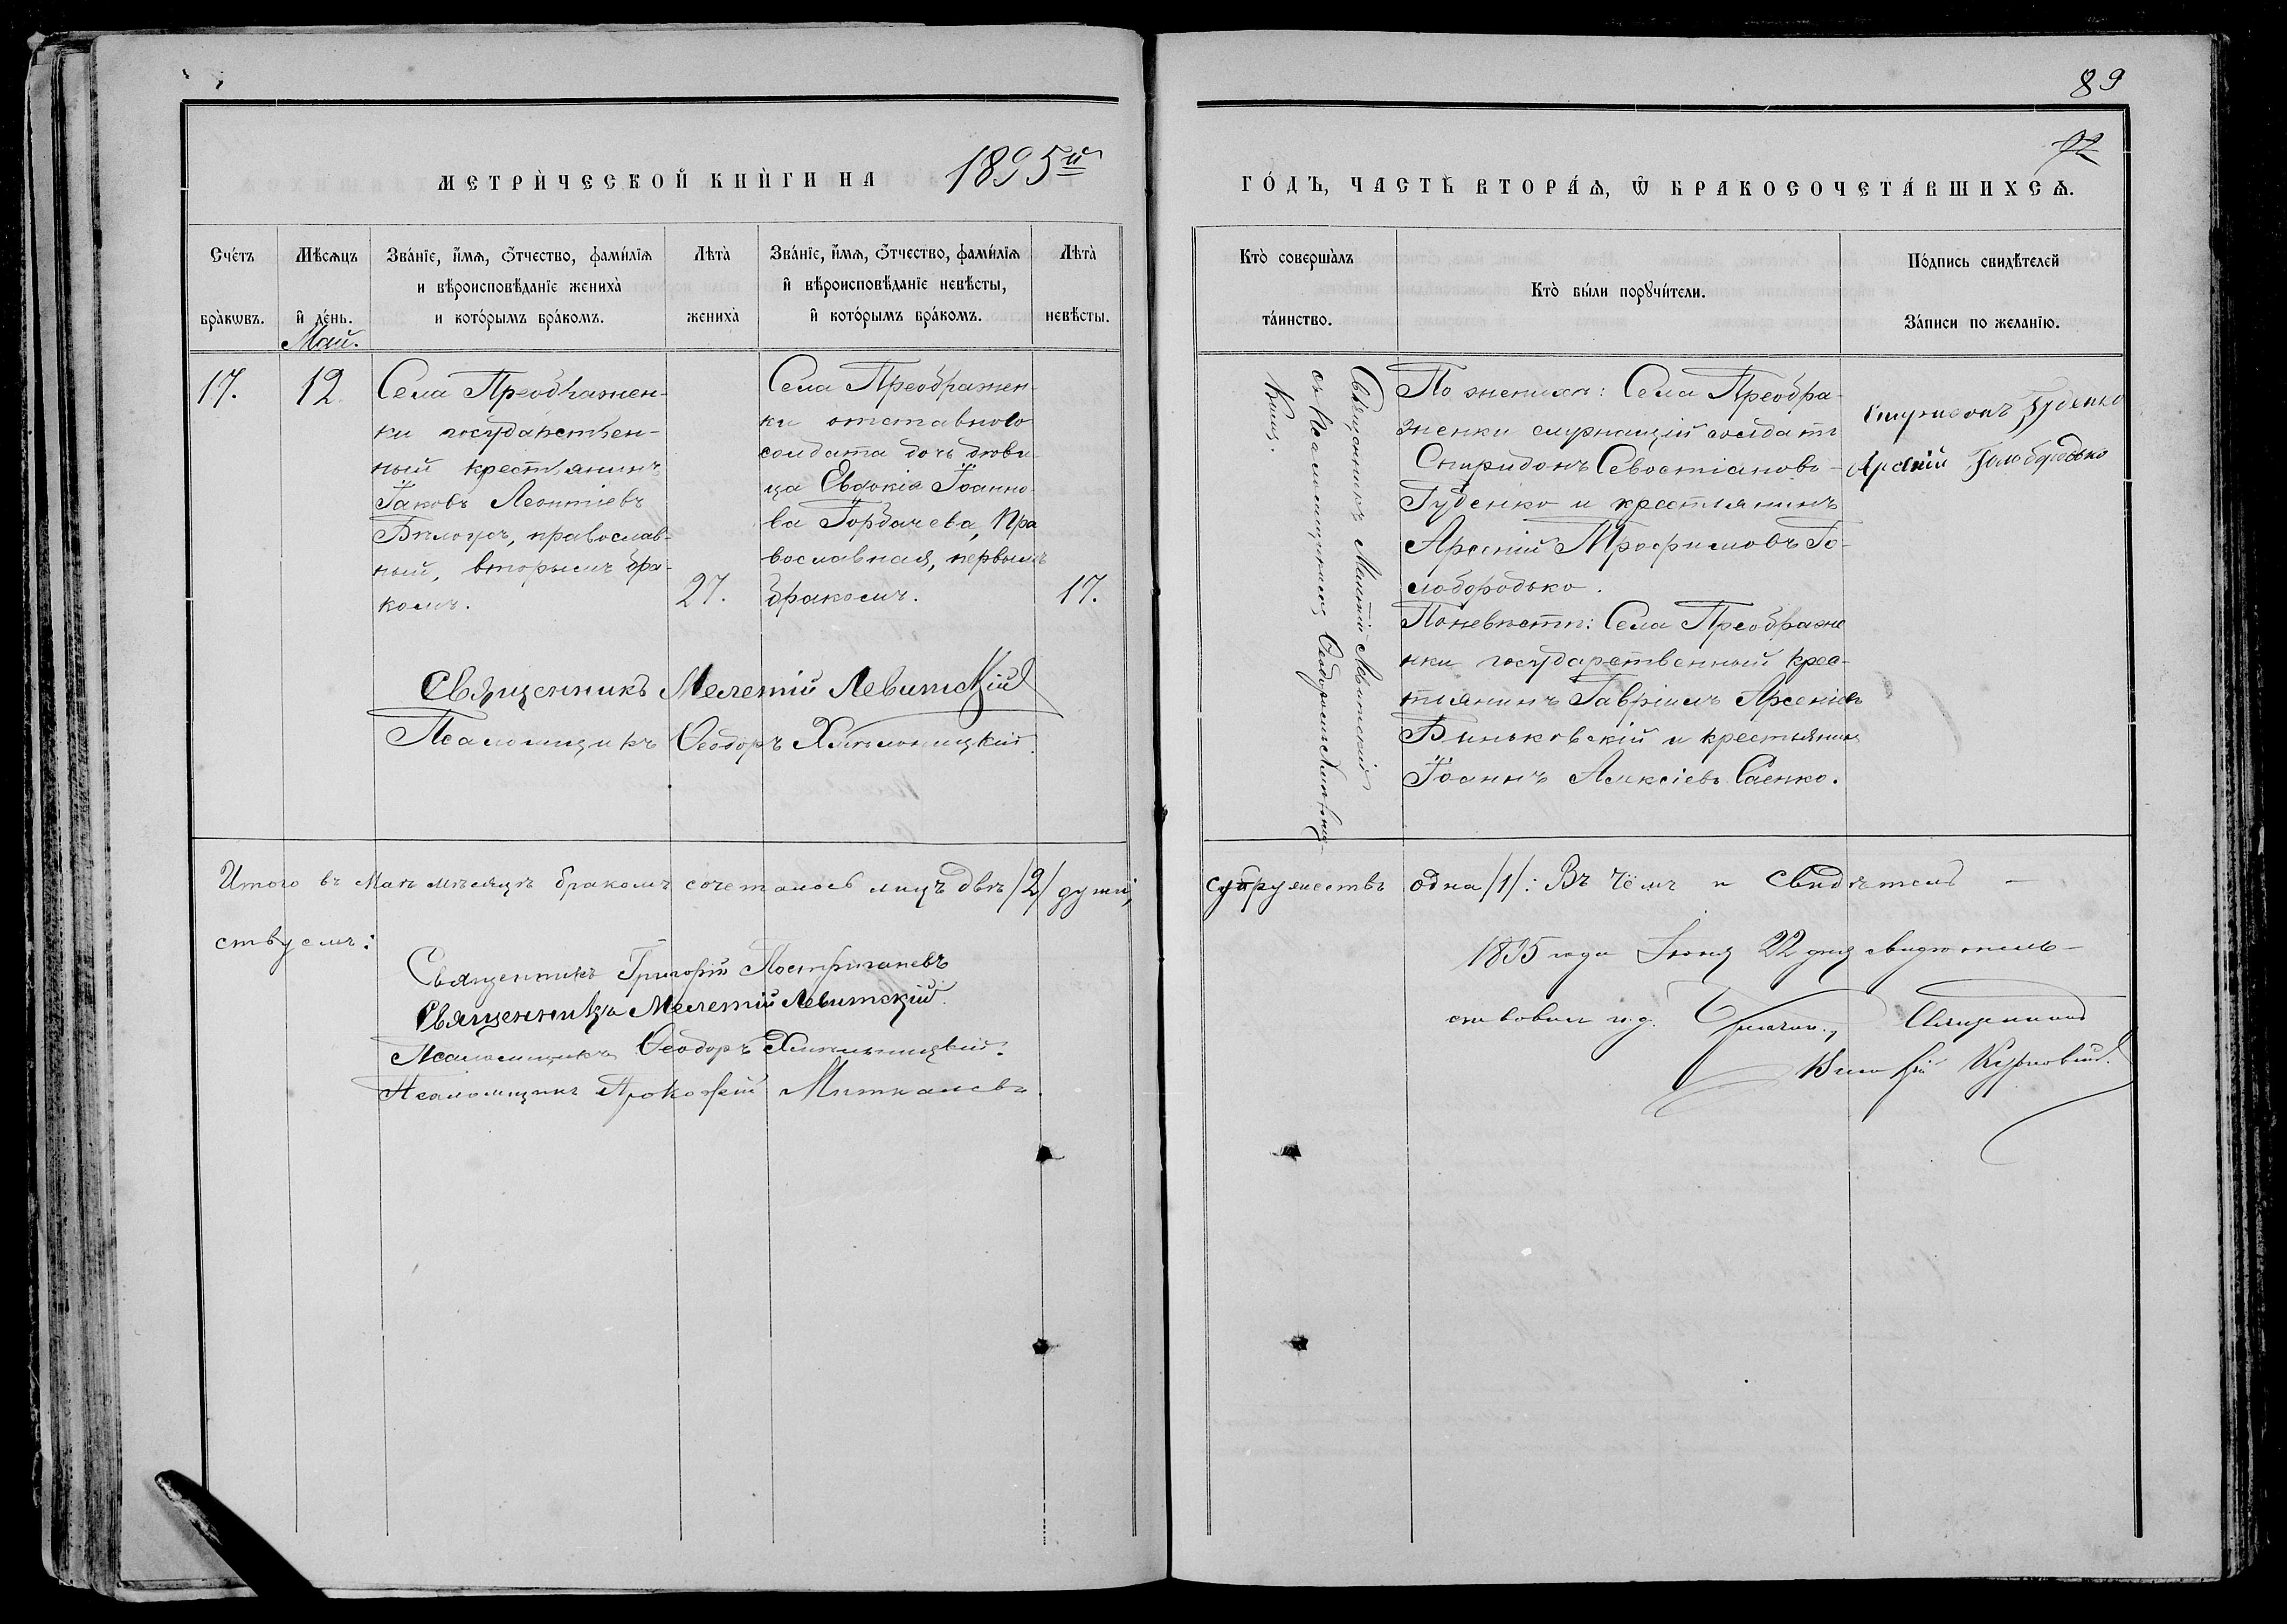 89
МЕТРИ́ЧЕСКОЙ КНИ́ГИ НА 1895й
ГО́ДЪ, ЧАСТЬ ВТОРА́Ѧ, Ѽ БРАКОСОЧЕТА́ВШИХСѦ.
Сче́тъ бра̀кѡвъ.
Мѣ́сѧцъ и҆ де́нь.
Зва́нїе, и҆́мѧ, ѻ҆́тчество, фами́лїѧ
и вѣроисповѣ́данїе жениха̀
и кото́рымъ бра́комъ.
Лѣта̀ жениха̀
Зва́нїе, и҆́мѧ, ѻ҆́тчество, фами́лїѧ
и҆ вѣроисповѣ́данїе невѣ́сты,
и҆ кото́рымъ бра́комъ.
Лѣта̀ невѣ́сты.
Кто̀ соверша̀лъ та́инство.
Кто̀ бы́ли порꙋчи́тели.
По́дпись свидѣ́телей
За́писи по жела́нїю.
Май.
17.
12
Села Преображен-
ки государствен-
ный крестьянинъ
Іаковъ Леонтіевъ
Бѣлоусъ, православ-
ный, вторымъ бра-
комъ.
27.
Села Преображен-
ки отставного
солдата дочь дѣви-
ца Евдокія Іоанно-
ва Горбачева, пра
вославная, первымъ
бракомъ.
17.
Священникъ Мелетій Левитскій
Псаломщикъ Ѳеодоръ Хмѣльницкій
Священникъ Мелетій Левитскій
съ псаломщикомъ Ѳеодоромъ Хмѣльниц-
кимъ.
По женихѣ: Села Преобра-
женки служащій солдатъ
Спиридонъ Севостіановъ
Гуденко и крестьянинъ
Арсеній Трофимовъ Го-
лобородько.
По невѣстѣ: Села Преображе
нки государственный крес-
тьянинъ Гавріилъ Арсеніевъ
Биньковскій и крестьянинъ
Іоаннъ Алексіевъ Саенко.
Спиридонъ Гуденко
Арсеній Голобородько
Итого въ Маѣ мѣсяцѣ бракомъ сочеталось лицъ двѣ /2/ души,
супружествъ одна /1/: Въ чёмъ и свидѣтель-
ствуемъ:
Священникъ Григорій
Священникъ Мелетій Левитскій.
Псаломщикъ Ѳеодоръ Хмѣльницкій.
Псаломщикъ Прокофій
1895 года Іюня 22 дня свидѣтель-
ствовалъ и.д. Священникъ